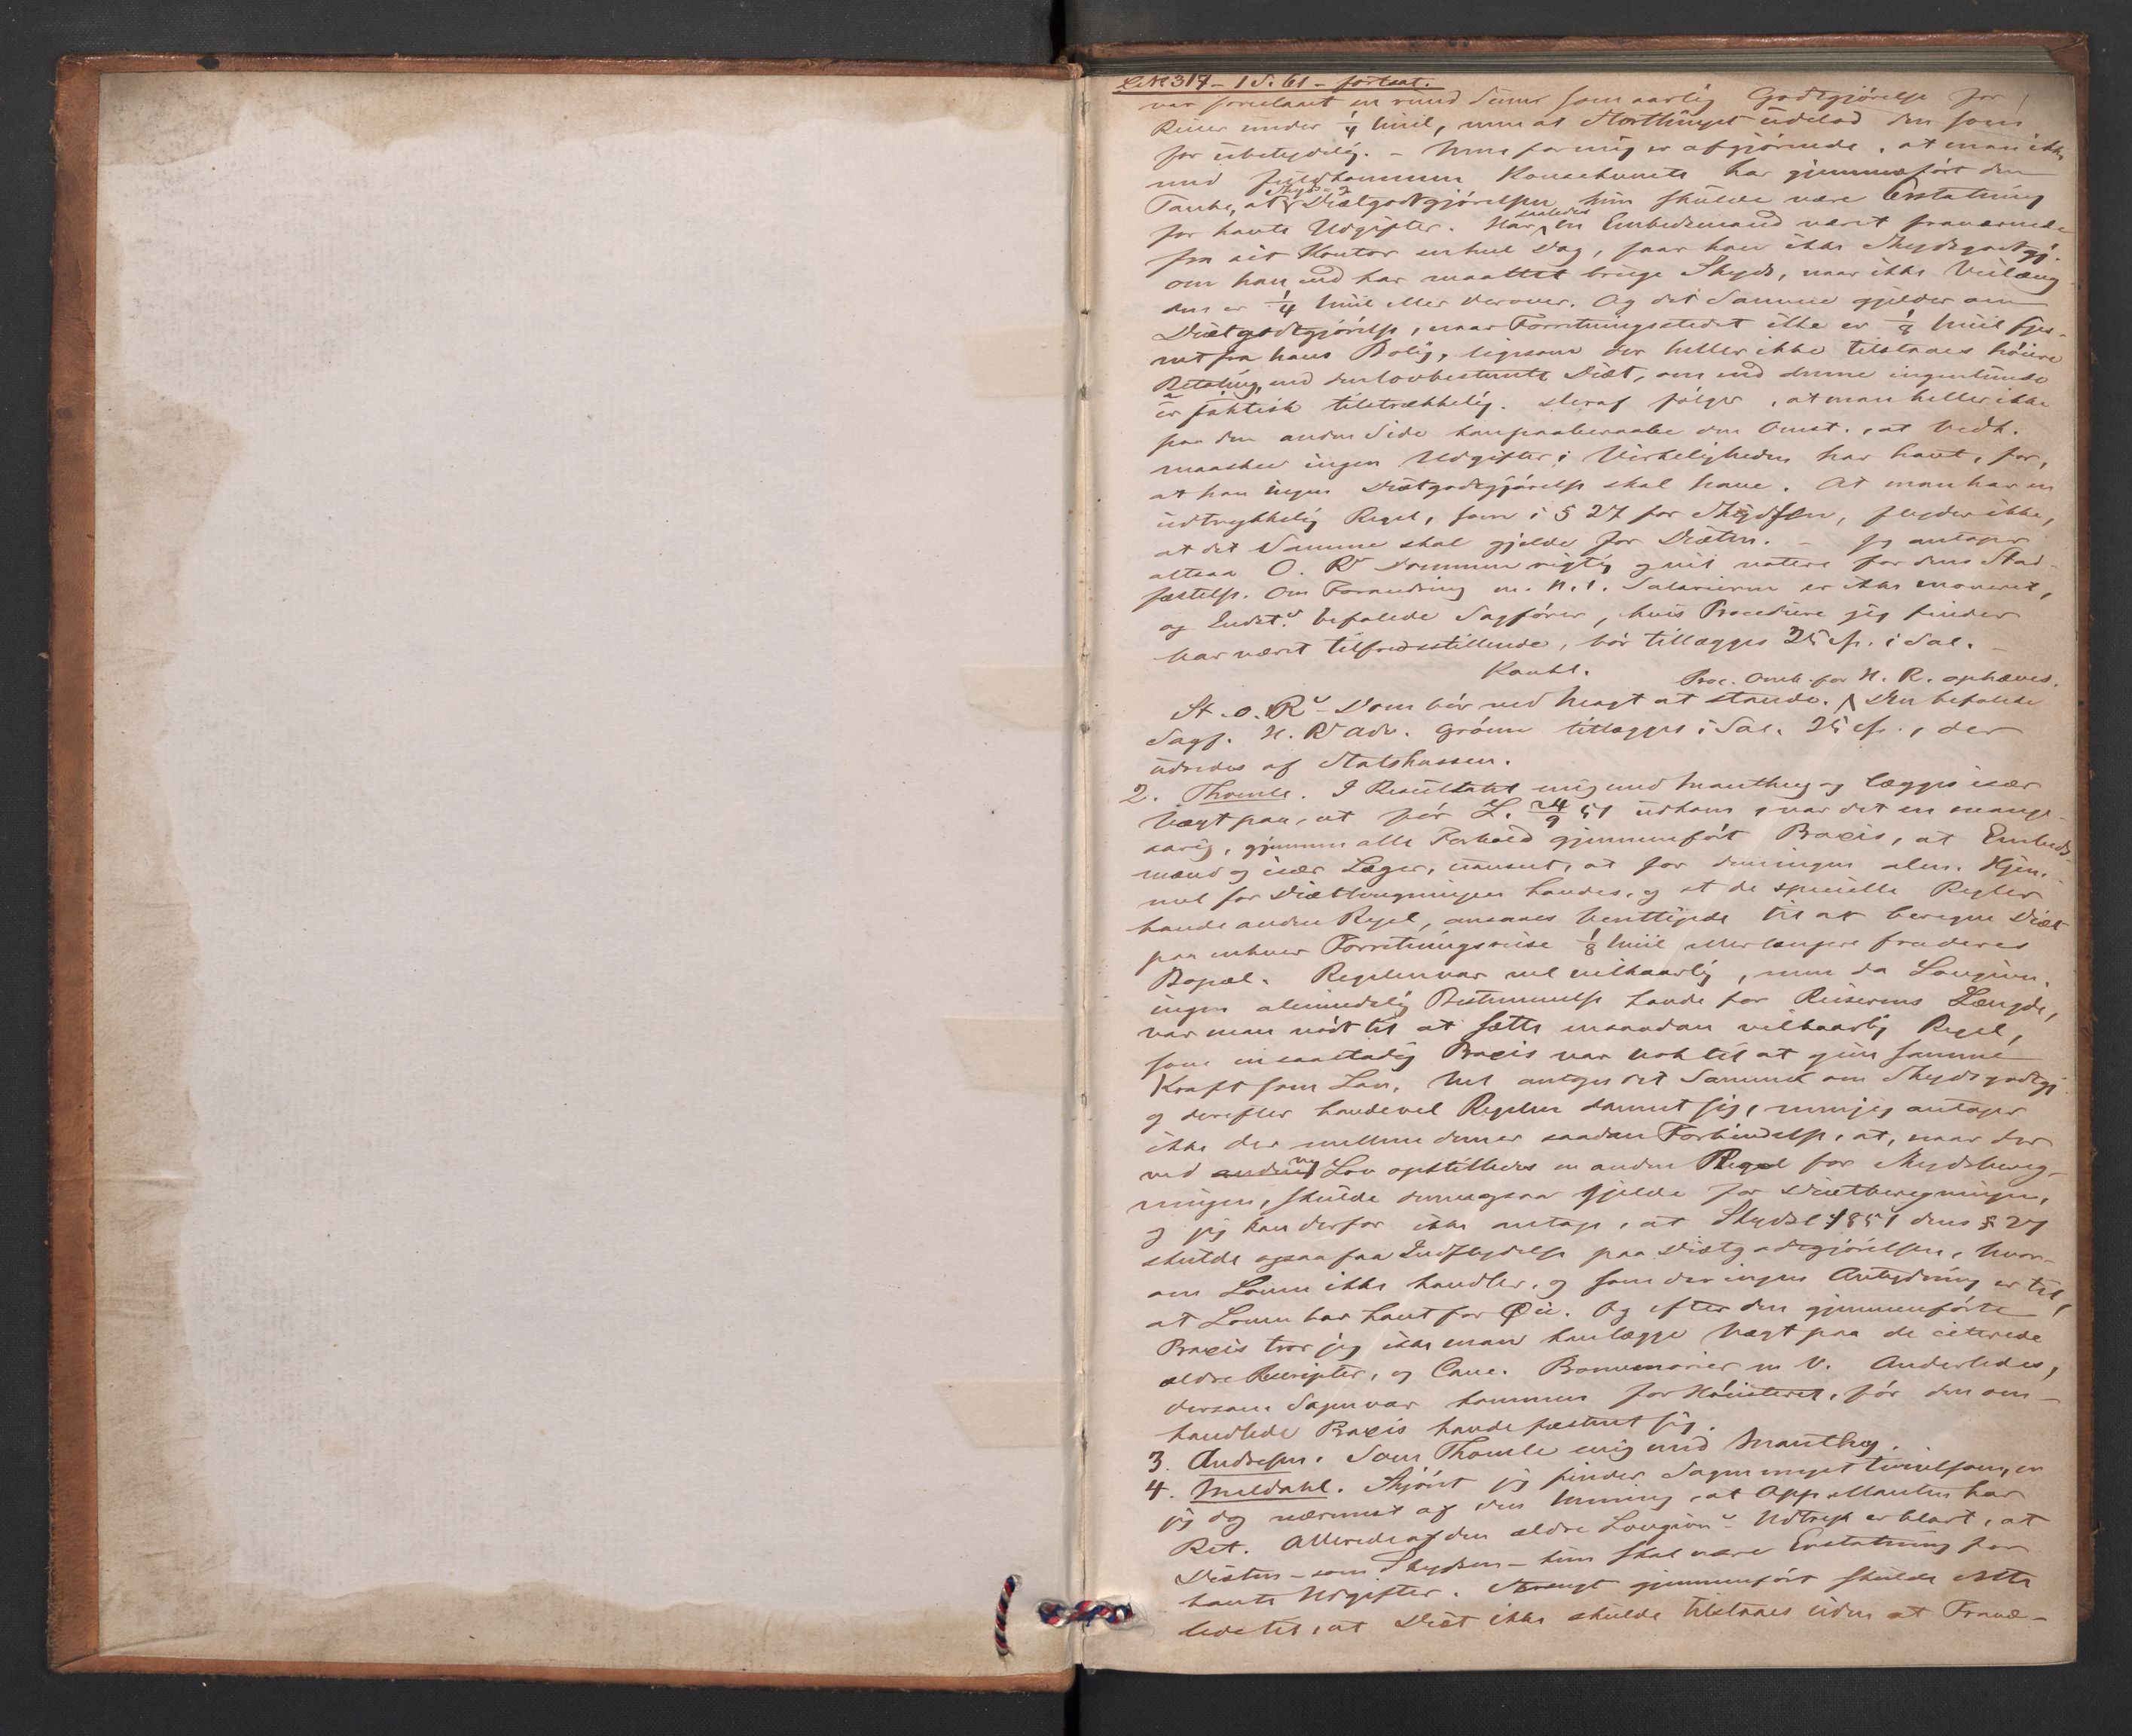 L. No 317 - 1 S. 61 - fortsat.
var foreslaaet en rund Sum som aarlig Godtgjörelse for
Reiser under 1/4 Miil, men at Storthinget udelod den som
for ubetydelig. - Men for mig er afgjörende, at man ikke
med fuldkommen Konsekvents har gjennemført den
Tanke, at Skyds- & Diætgodtgjörelsen kun skulde være Erstatning
for havte Udgifter. Har saaledes en Embedsmand været fraværende
fra sit Kontor en heel Dag, faar han ikke Skydsgodtgj.
om han end har maattet bruge Skyds, naar ikke Veilæng
den er 1/4 Miil eller derover. Og det Samme gjelder om
Diætgodtgjörelse, naar Forretningsstedet ikke er 1/8 Miil fjer-
net fra hans Bolig, ligesom der heller ikke tilstaaes höiere
Betaling, end den lovbestemte Diæt, om end denne ingenlunde
er faktisk tilstrækkelig. Heraf følger, at man heller ikke
paa den anden Side kan paaberaabe den Omst., at Vedk.
maaskee ingen Udgifter i Virkeligheden har havt, for,
at han ingen Diætgodtgjörelse skal have. At man har en
udtrykkelig Regel, som i § 27 for Skydsen, flyder ikke,
at det Samme skal gjelde for Diæten. - Jeg antager
altsaa O. Rs Dommen rigtig og vil votere for dens Stad-
fæstelse. Om Forandring m. H. t. Salarierne er ikke moveret,
og Indst. befalede Sagfører, hvis Procedure jeg finder
har været tilfredsstillende, bör tillægges 25 Sp. i Sal. -
Konkl.
Proc. Omk. for H. R. ophæves.
St. o. Rs - Dom bör ved Magt at stande. Den befalede
Sagf. H. Rs Adv. Grönn tillægges i Sal. 25 Sp., der
udredes af Statskassen.
2. Thomle. I Resultatet enig med Manthey og lægger især
Vægt paa, at för L. 24/9 51 udkom, var det en mange-
aarig, gjennem alle Forhold gjennemfört Praxis, at Embeds-
mænd og især Læger, uanset, at for dem ingen alm. Hjem-
mel for Diætberegningen havdes, og at de specielle Regler
havde anden Regel, ansaaes berettigede til at beregne Diæt
paa enhver Forretningsreise 1/8 Miil eller længere fra deres
Bopæl. Regelen var vel vilkaarlig, men da Lovgivn.
ingen almindelig Bestemmelse havde for Reisernes Længde,
var man nödt til at sætte en saadan vilkaarlig Regel,
som en saa stadig Praxis var nok til at give samme
Kraft som Lov. Vel antoges det Samme om Skydsgodtgj.
og derefter havde vel Regelen dannet sig, men jeg antager
ikke der mellem dem er saadan Forbindelse, at, naar der
ved ny Lov opstilledes en anden Regel for Skydsbereg-
ningen, skulde denne ogsaa gjelde for Diætberegningen,
og jeg kan derfor ikke antage, at Skydsl. 1851 dens § 27
skulde ogsaa faa Indflydelse paa Diætgodtgjörelsen, hvor-
om Loven ikke handler, og som der ingen Antydning er til,
at Loven har havt for Öie. Og efter den gjennemförte
Praxis tror jeg ikke man kan lægge Vægt paa de citerede
ældre Rescripter, og Canc. Promemorier m. V. Anderledes,
dersom Sagen var kommen for Höiesteret, för den om-
handlede Praxis havde fæstnet sig.
3. Andresen. Som Thomle enig med Manthey.
4. Meldahl. Skjönt jeg finder Sagen meget tvivlsom, er
jeg dog nærmest af den Mening, at Appellanten har
Ret. Allerede af den ældre Lovgivns Udtryk er klart, at
Diæten - som Skydsen - kun skal være Erstatning for
havte Udgifter. Strengt gjennemfört skulde dette
lede til, at Diæt ikke skulde tilstaaes uden at Fravæ-